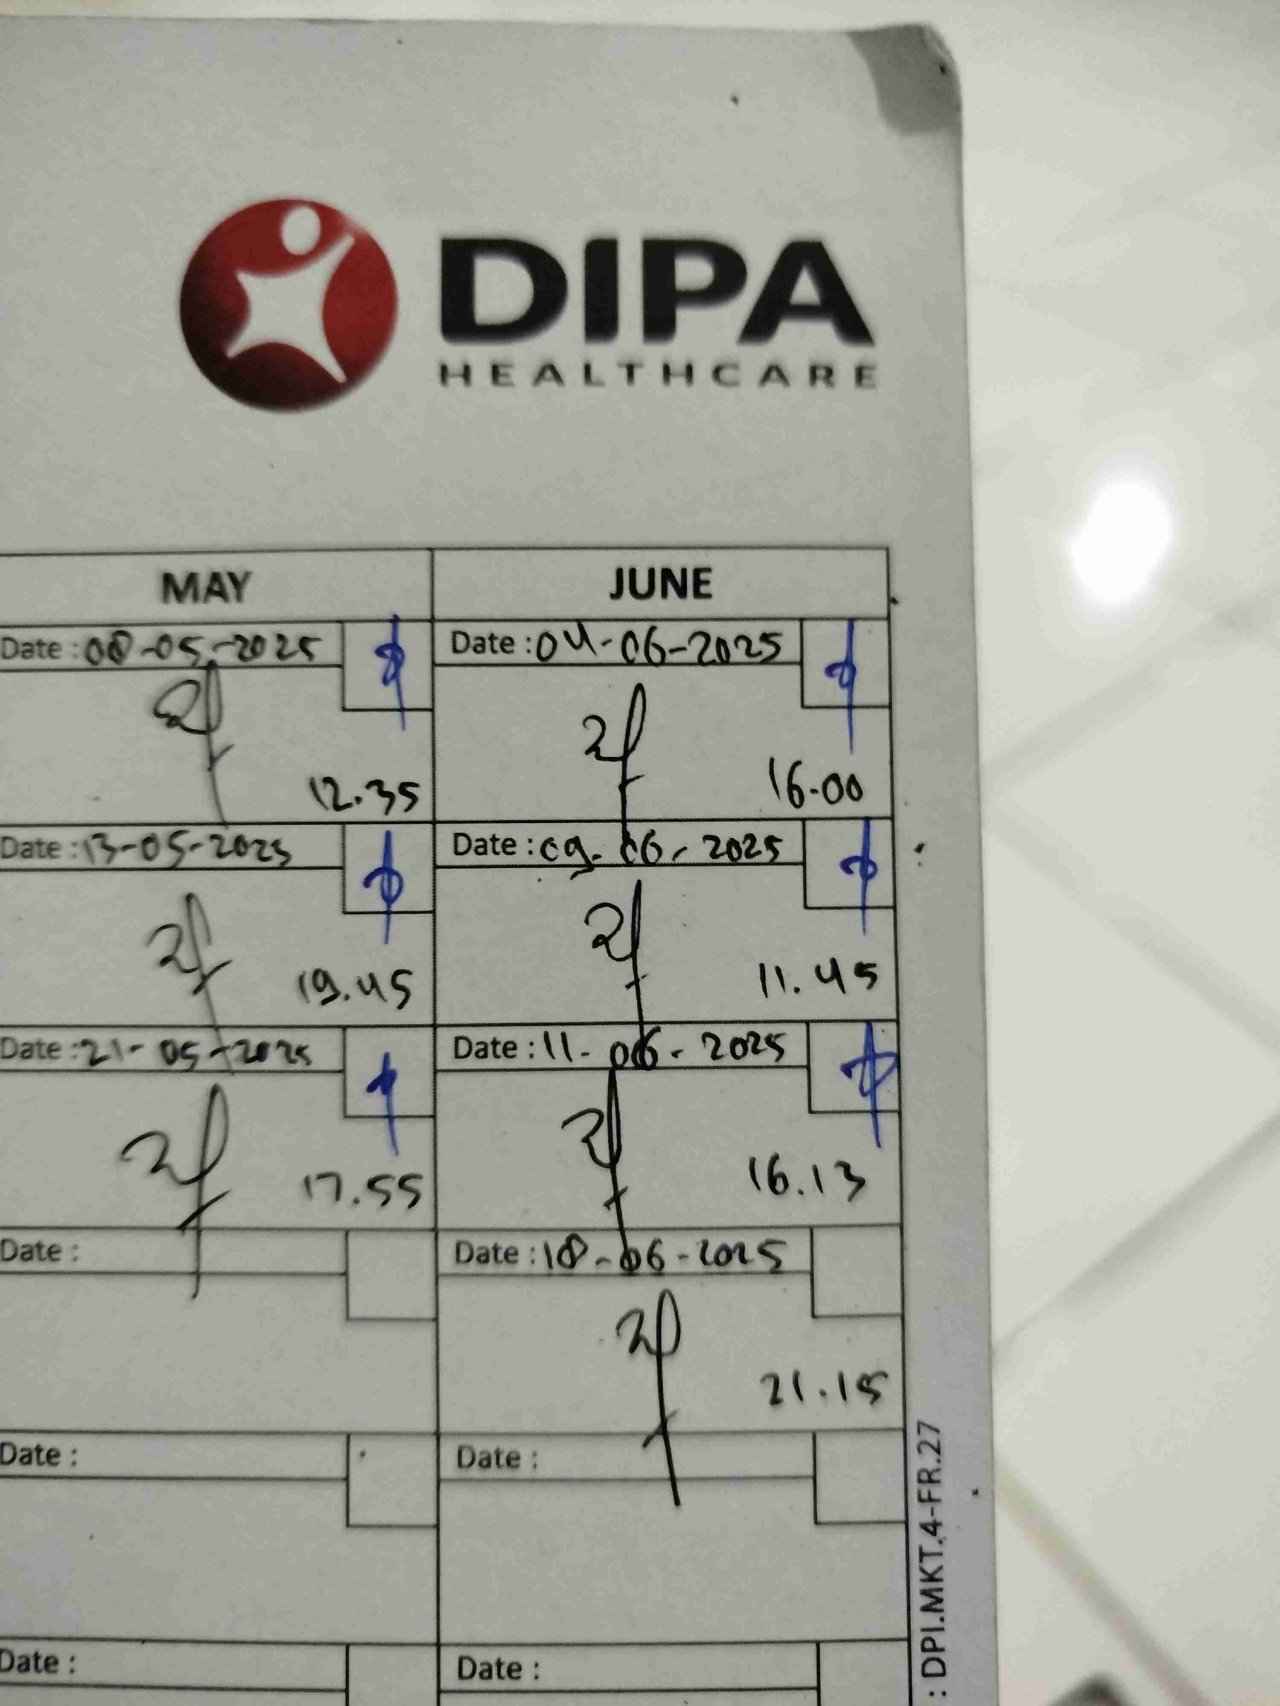 DIPA
HEALTHCARE
MAY JUNE
Date : 08-05-2025 Date : 04-06-2025
12.35 16.00
Date : 13-05-2025 Date : 09-06-2025
19.45 11.45
Date : 21-05-2025 Date : 11-06-2025
17.55 16.13
Date : Date : 18-06-2025
21.15
Date : Date :
Date : Date :
: DPI.MKT.4-FR.27